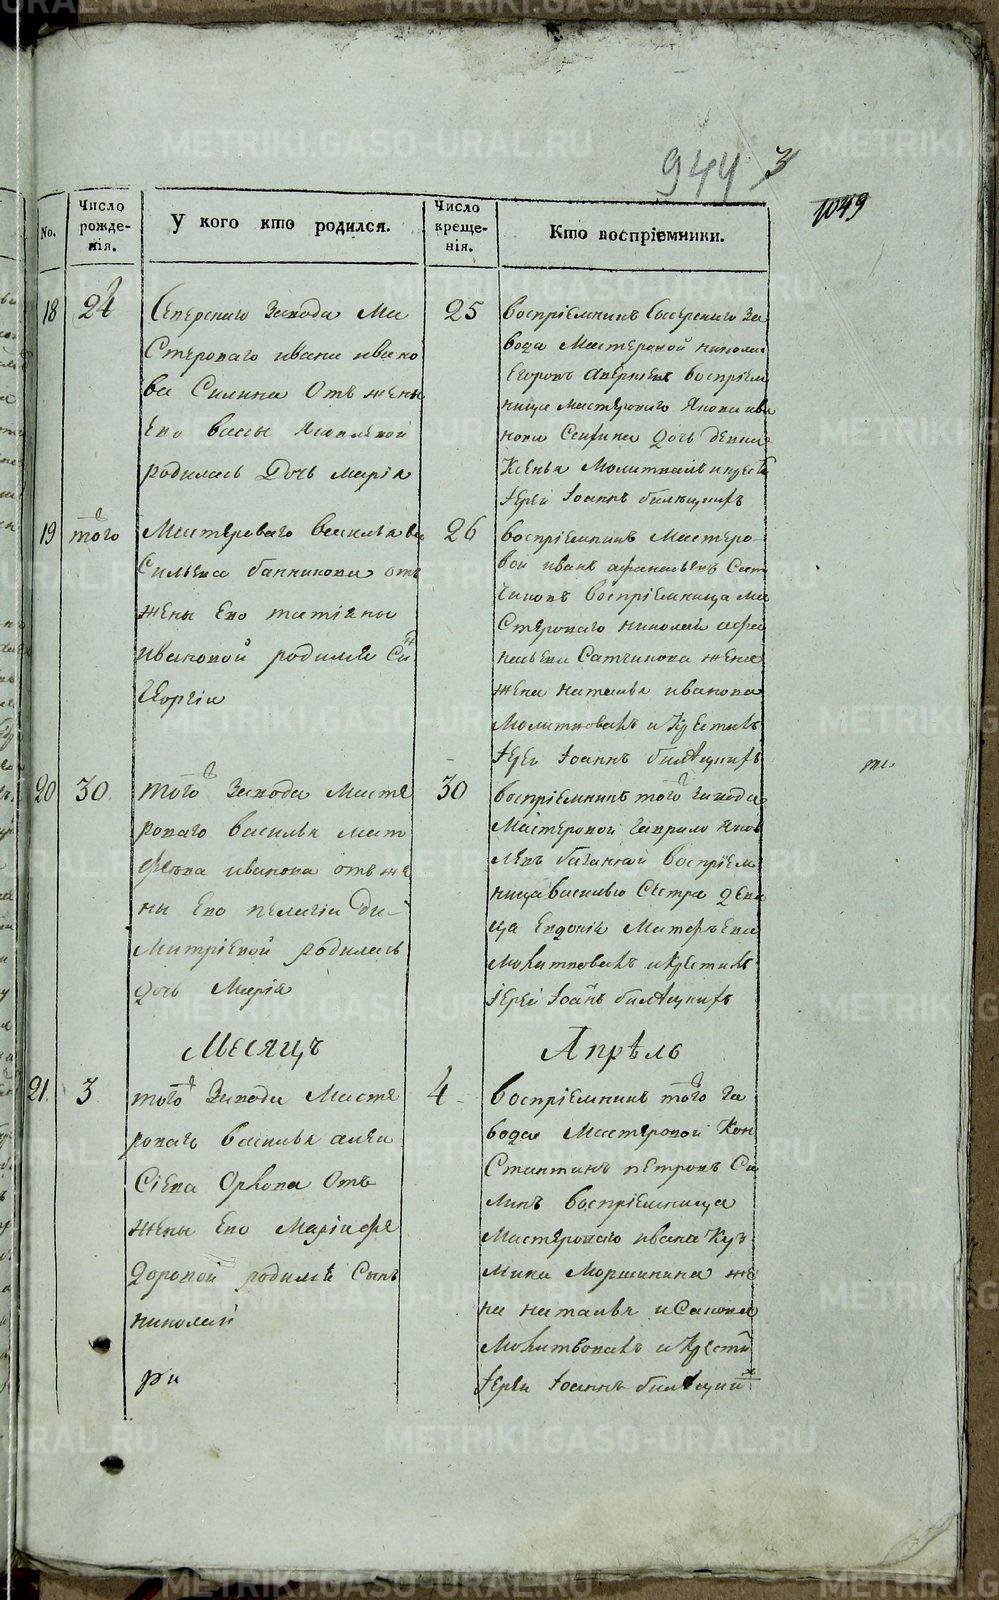 944 3
1049
No.
Число рожде-нія.
У кого кто родился.
Число креще-нія.
Кто воспріемники.
18
24
Северскаго Завода Ма
Стероваго ивана ивано
ва Силина Отъ жены
Его вассы Яковлевой
родилась Дочь Марія
25
воспріемникъ Северскаго За
вода Мастеровой николай
Егоровъ аверкіевъ воспріем
ница мастероваго Якова ива
нова дочь девка
Ксенья Молитвалъ и крести
Іерей Іоаннъ
19
того
Мастероваго василья ва
Сильева банникова отъ
жены Его татіяны
ивановой родился Сы
Георгій
26
воспріемникъ Мастеро
вой иванъ афанасьевъ Сат
чиковъ воспріемница Ма
Стероваго николая афа
насьева Сатчикова жена
жена наталья иванова
Молитвовалъ и Крестилъ
Іерей Іоаннъ
20
30
того Завода Масте
роваго василья мат
фѣева иванова отъ же
ны Его пелагіи Ди-
Митріевой родилась
Дочь Марія
30
воспріемникъ того Завода
Мастеровой гаврило яков
левъ воспріем
ница василью Сестра деви
ца Евдокія Матфѣева
Молитвовалъ и Крестилъ
Іерей Іоанъ
те
Месяцъ Апрѣль
21.
3
того Завода Масте
роваго василья алек
Сіева Орлова Отъ
жены Его Маріи фе
доровой родился Сынъ
николай
ри
4
Воспріемникъ того За
вода Мастеровой Кон
Стантинъ петровъ Си
линъ воспріемница
Мастероваго ивана Куз
мина Моршинина же
на наталья исакова
Молитвовалъ и Крести
Іереи Іоаннъ
METRIKI.GASO-URAL.RU